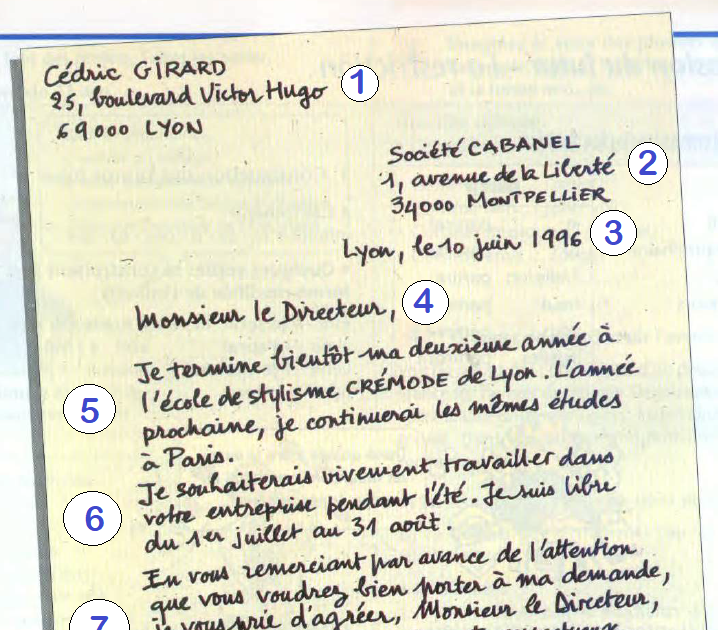 Cédric GIRARD
25, boulevard Victor Hugo
69000 LYON
1
Société CABANEL
1, avenue de la Liberté
34000 MONTPELLIER
2
Lyon, le 10 juin 1996
3
Monsieur le Directeur,
4
Je termine bientôt ma deuxième année à
l'école de stylisme CRÉMODE de Lyon. L'année
prochaine, je continuerai les mêmes études
à Paris.
5
Je souhaiterais vivement travailler dans
votre entreprise pendant l'été. Je suis libre
du 1er juillet au 31 août.
6
En vous remerciant par avance de l'attention
que vous voudrez bien porter à ma demande,
je vous prie d'agréer, Monsieur le Directeur,
7